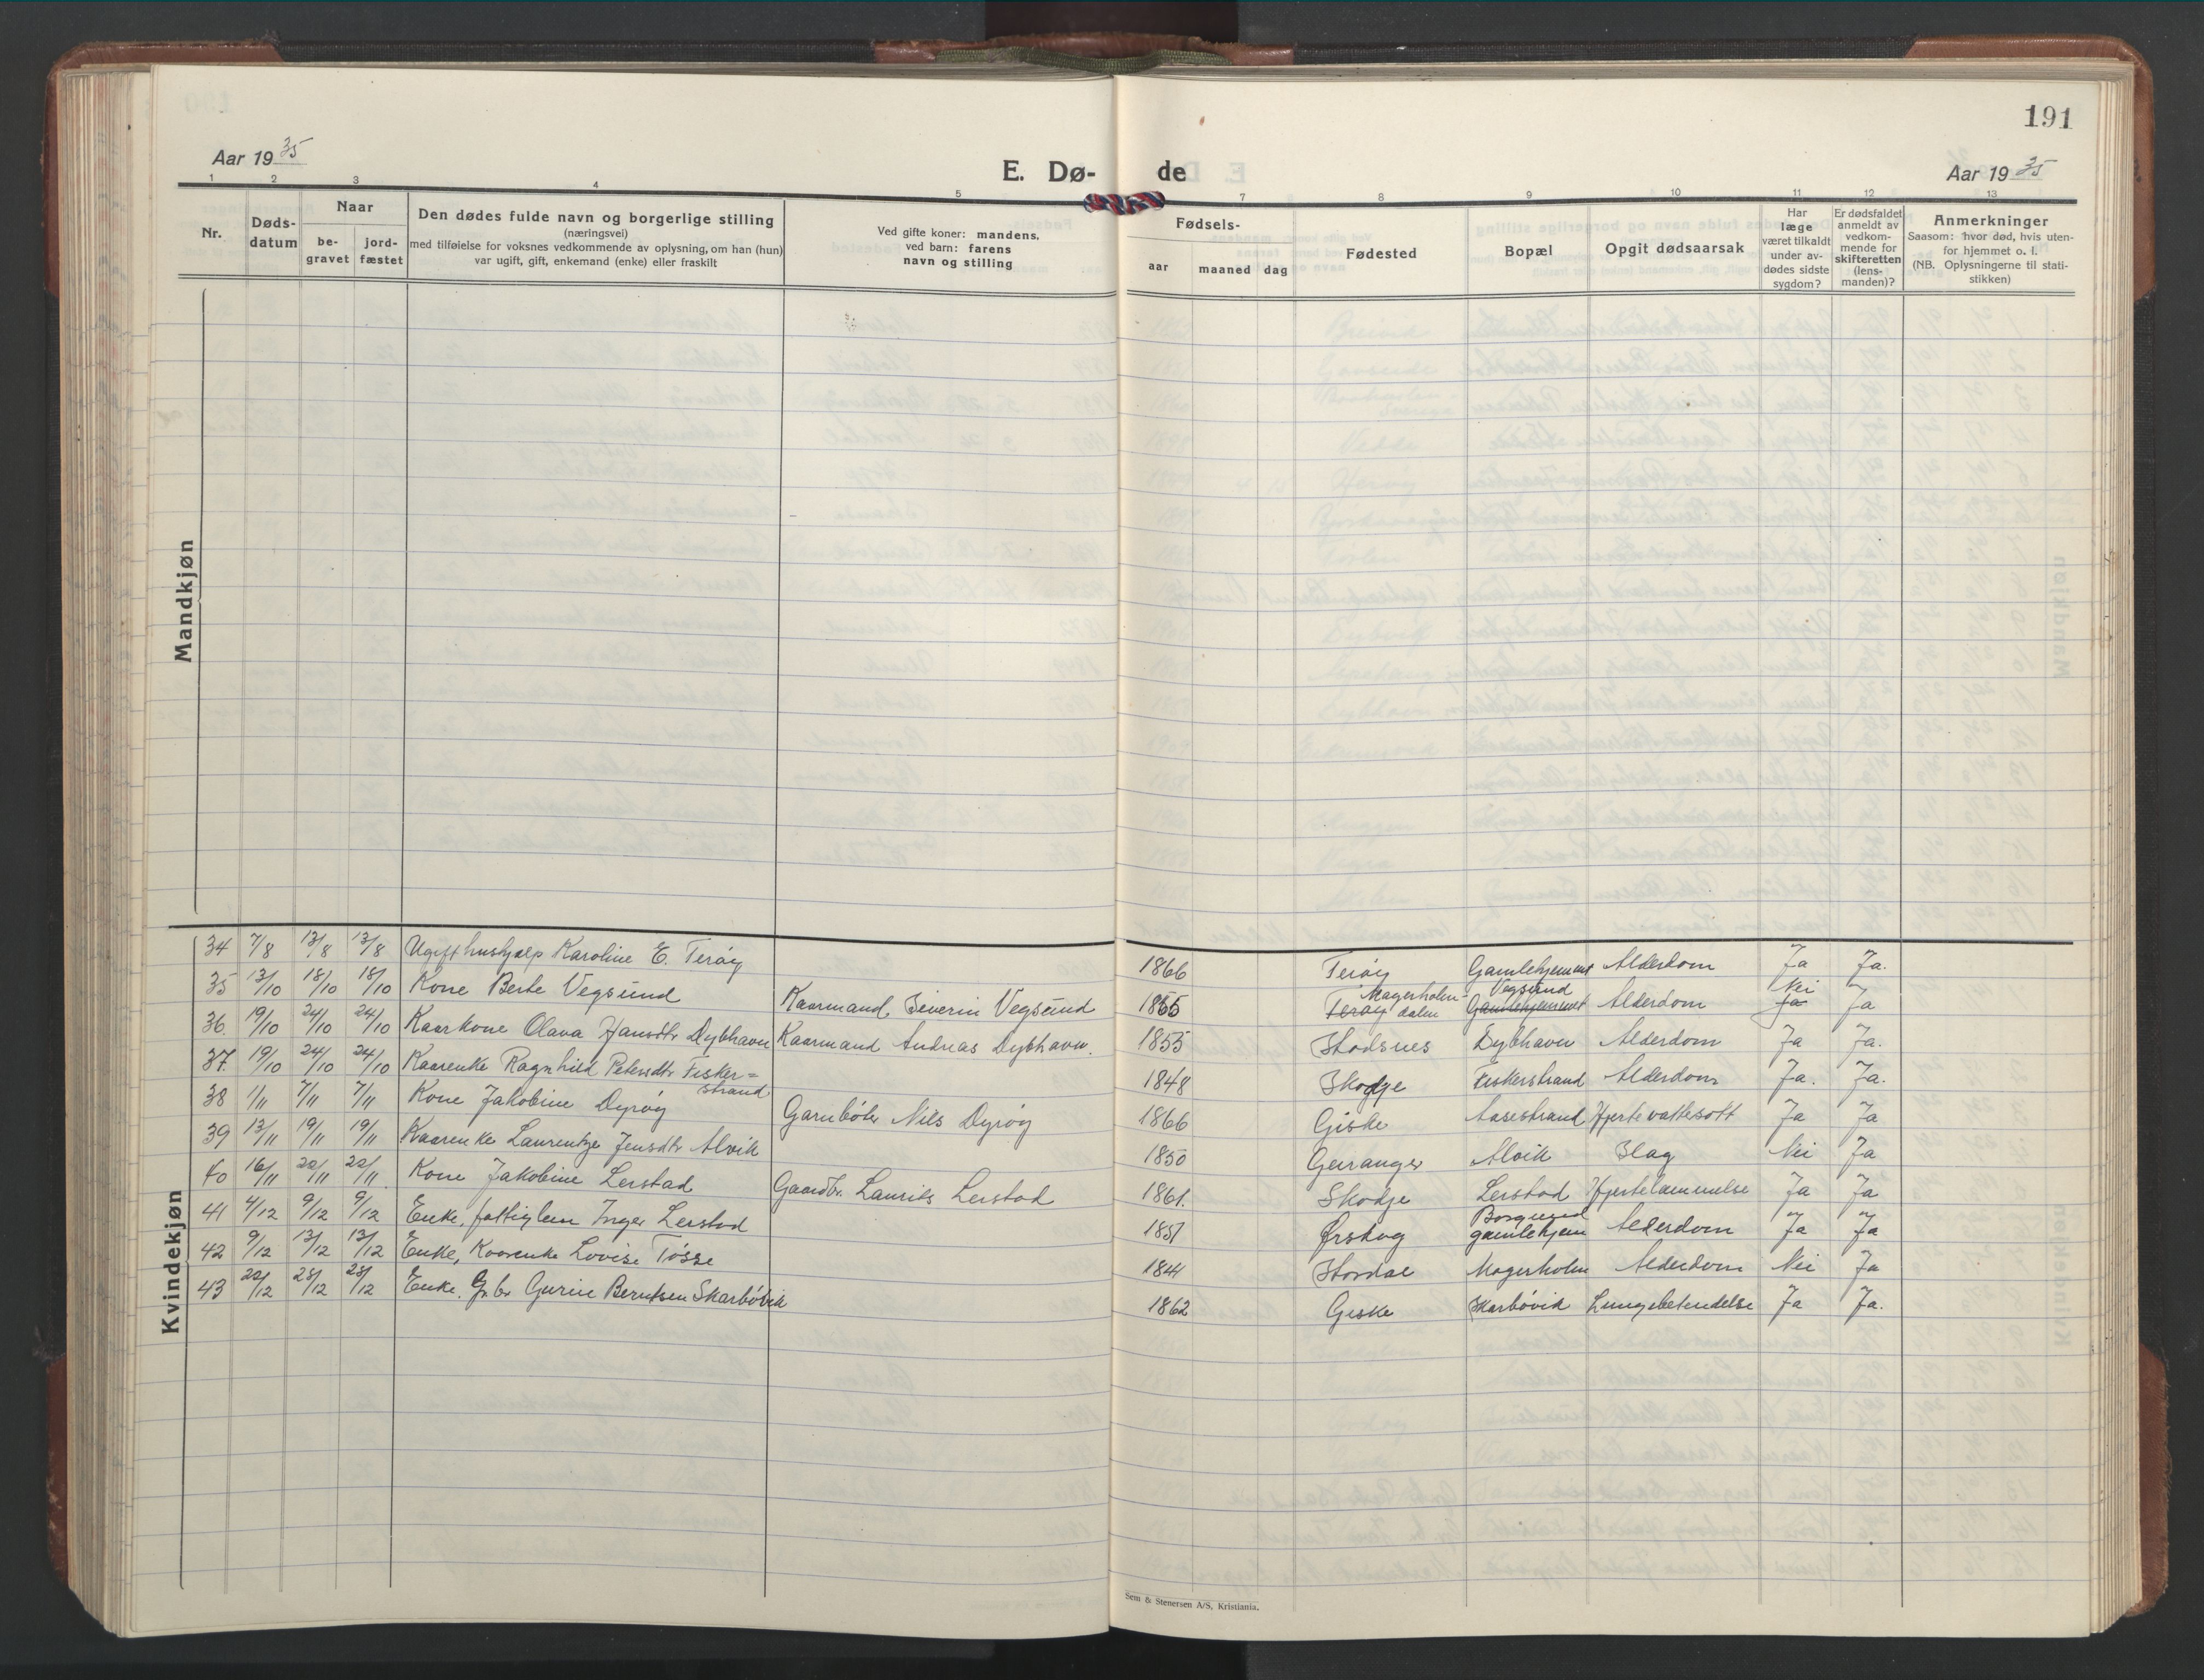 191
Aar 1935
E. Dø- de
Aar 1935
1 2 3 4 5 7 8 9 10 11 12 13
Nr.
Døds-
datum
Naar
be-
gravet
jord-
fæstet
Den dødes fulde navn og borgerlige stilling
(næringsvei)
med tilføielse for voksnes vedkommende av oplysning, om han (hun)
var ugift, gift, enkemand (enke) eller fraskilt
Ved gifte koner: mandens,
ved barn: farens
navn og stilling
Fødsels-
aar maaned dag
Fødested
Bopæl
Opgit dødsaarsak
Har
læge
været tilkaldt
under av-
dødes sidste
sygdom?
Er dødsfaldet
anmeldt av
vedkom-
mende for
skifteretten
(lens-
manden)?
Anmerkninger
Saasom: hvor død, hvis uten-
for hjemmet o. l.
(NB. Oplysningerne til stati-
stikken)
Mandkjøn
Kvindekjøn
34 7/8 13/8 13/8 Ugift hushjælp Karoline E. Terøy 1866 Terøy Gamlehjemmet Alderdom Ja Ja.
Magerholm- Vegsund Nei
35 13/10 18/10 18/10 Kone Berte Vegsund Kaarmand Severin Vegsund 1865 Terøy dalen Gamlehjemmet Alderdom Ja Ja
36. 19/10 24/10 24/10 Kaarkone Olava Hansdtr Dybhavn Kaarmand Andreas Dybhavn. 1855 Stodsnes Dybhavn Alderdom Ja Ja.
37. 19/10 24/10 24/10 Kaarenke Ragnhild Petersdtr Fisker= 1848 Skodje Fiskerstrand Alderdom Ja. Ja.
strand
38 1/11 7/11 7/11 Kone Jakobine Dyrøy Garnbøter Nils Dyrøy 1866 Giske Aasestrand Hjertevattesott Ja Ja
39 13/11 19/11 19/11 Kaarenke Laurentze Jensdtr Alvik 1850 Geiranger Alvik Slag Nei Ja
40 16/11 22/11 22/11. Kone Jakobine Lerstad Gaardbr. Laurits Lerstad 1861. Skodje Lerstad Hjertelammelse Ja Ja
Borgund
41 4/12 9/12 9/12 Enke, fattiglem Inger Lerstad 1851 Ørskog gamlehjem Alderdom Ja Ja
42 9/12 13/12 13/12 Enke, Kaarenke Lovise Tøsse 1844 Stordal Magerholm Alderdom Nei Ja
43 22/12 28/12 28/12 Enke. G.br. Gurine Berntsen Skarbøvik 1862 Giske Skarbøvik Lungebetendelse Ja Ja.
Sem & Stenersen A/S, Kristiania.